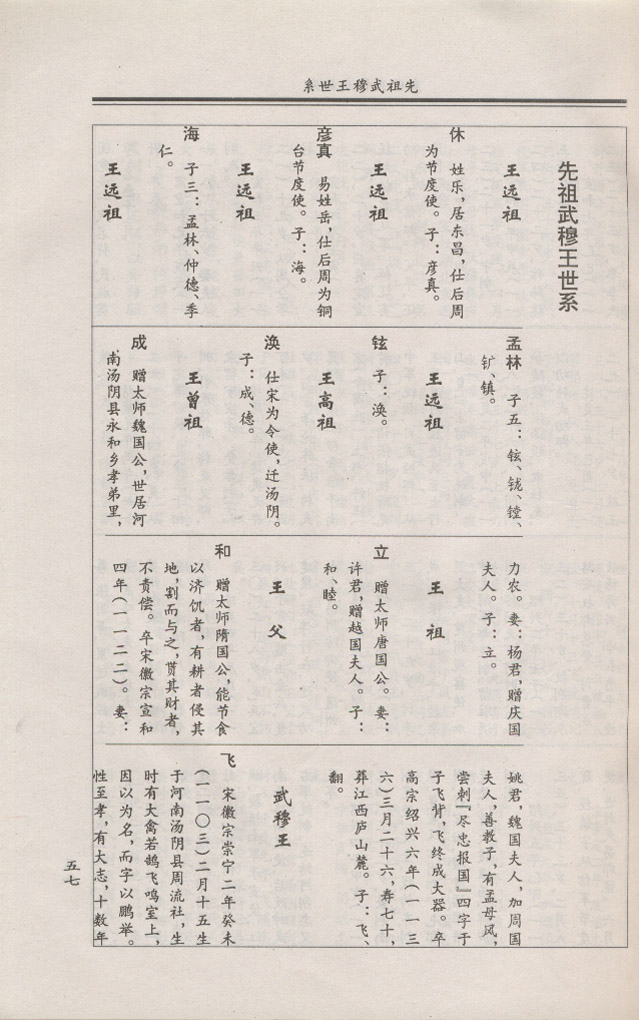 先祖武穆王世系
先祖武穆王世系
王远祖
休 姓乐,居东昌,仕后周
为节度使。子:彦真。
王远祖
彦真 易姓岳,仕后周为铜
台节度使。子:海。
王远祖
海 子三:孟林、仲德、季
仁。
王远祖
孟林 子五:铉、、镗、
、镇。
王远祖
铉 子:涣。
王高祖
涣 仕宋为令使,迁汤阴。
子:成、德。
王曾祖
成 赠太师魏国公,世居河
南汤阴县永和乡孝弟里,
力农。妻:杨君,赠庆国
夫人。子:立。
王 祖
立 赠太师唐国公。妻:
许君,赠越国夫人。子:
和、睦。
王 父
和 赠太师隋国公,能节食
以济饥者,有耕者侵其
地,割而与之,贳其财者,
不责偿。卒宋徽宗宣和
四年(一一二二)。妻:
姚君,魏国夫人,加周国
夫人,善教子,有孟母风,
尝刺『尽忠报国』四字于
子飞背,飞终成大器。卒
高宗绍兴六年(一一三
六)三月二十六,寿七十,
葬江西庐山麓。子:飞、
翻。
武穆王
飞 宋徽宗崇宁二年癸未
(一一〇三)二月十五生
于河南汤阴县周流社,生
时有大禽若鹄飞鸣室上,
因以为名,而字以鹏举。
性至孝,有大志,十数年
五七